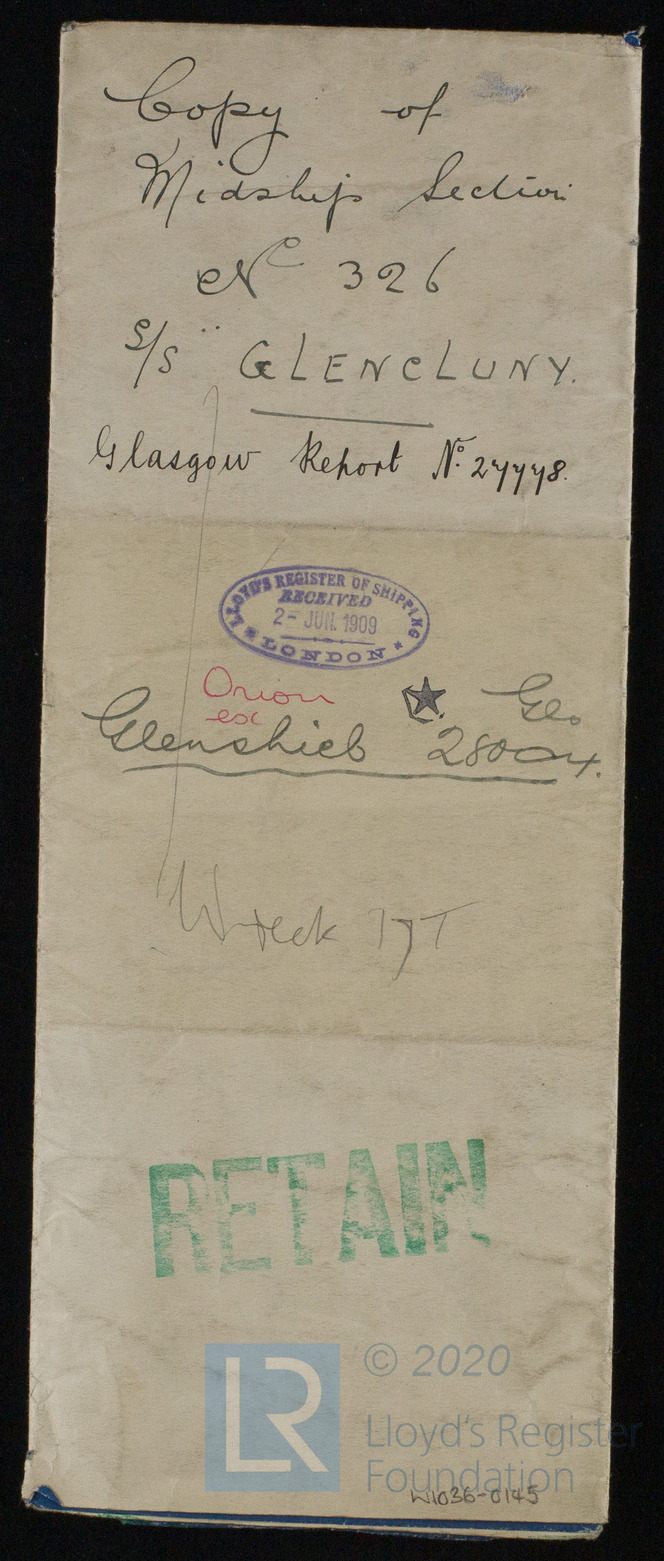 Copy of
Midship Section
No 326
S/S GLENCLUNY.
Glasgow Report No. 27778.
LLOYD'S REGISTER OF SHIPPING
RECEIVED
2- JUN. 1909
LONDON
Orion
ex
Glenshiel 28004.
Wreck
RETAIN
LR
© 2020
Lloyd's Register
Foundation
W1036-0145